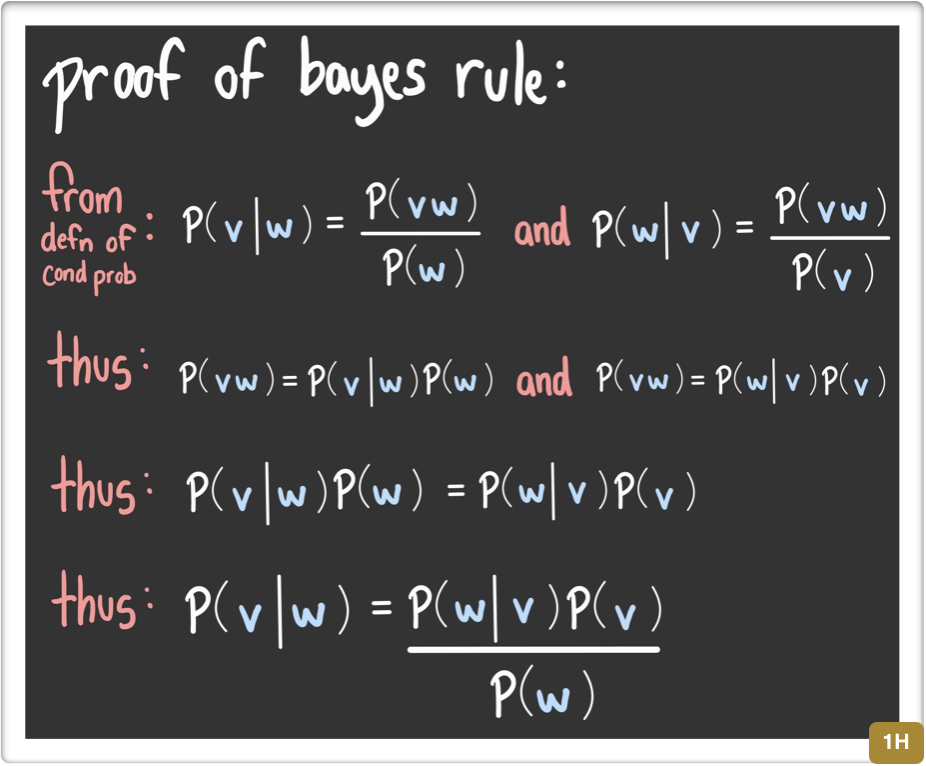 proof of bayes rule:
from
defn of :
cond prob
P(v|w) = P(vw) / P(w) and P(w|v) = P(vw) / P(v)
thus: P(vw) = P(v|w)P(w) and P(vw) = P(w|v)P(v)
thus: P(v|w)P(w) = P(w|v)P(v)
thus: P(v|w) = P(w|v)P(v) / P(w)
1H